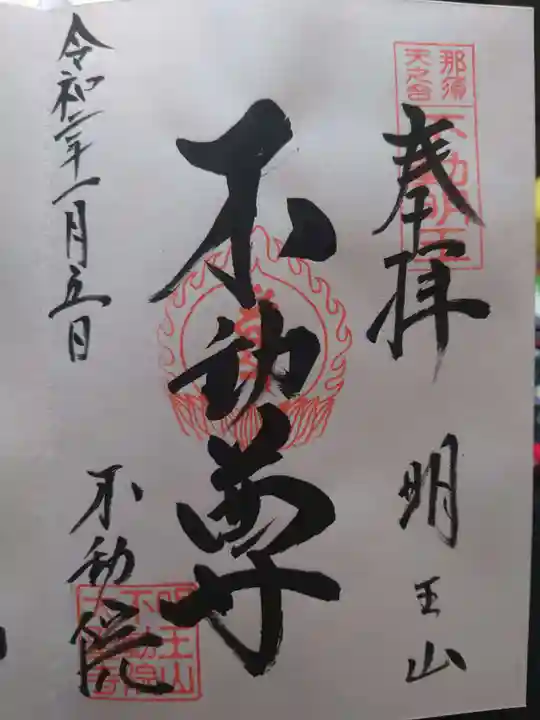 奉拝
明王山
那須
天之宮
不動明王
不動尊
令和二年一月五日
不動院
明王山
不動院